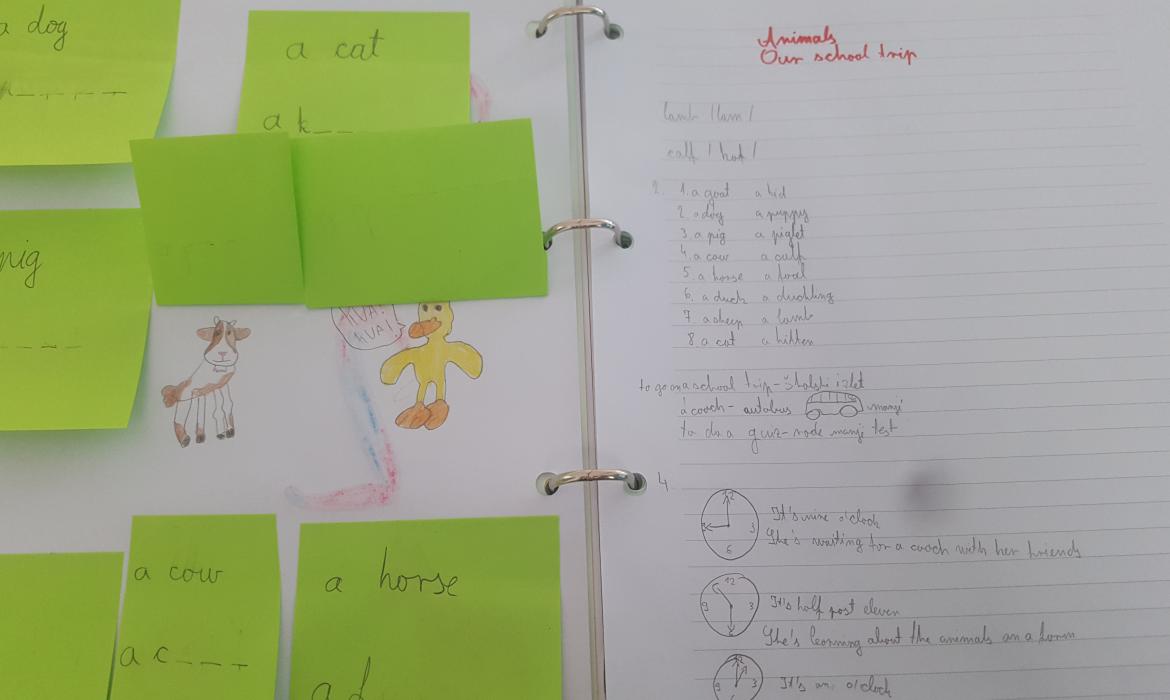 a dog
a cat
a k_ _
pig
_ _ _ _
a cow
a c_ _ _
a horse
a f
KVA!
KVA!
Animals
Our school trip
lamb /lam/
calf / kaf /
2. 1. a goat a kid
2. a dog a puppy
3. a pig a piglet
4. a cow a calf
5. a horse a foal
6. a duck a duckling
7. a sheep a lamb
8. a cat a kitten
to go on a school trip - školski izlet
a coach - autobus manji
to do a quiz - rade manji test
4
12
3
6
It's nine o'clock
She's waiting for a coach with her friends
12
9 3
6
It's half past eleven
She's learning about the animals on a farm
12
3
6
It's o'clock